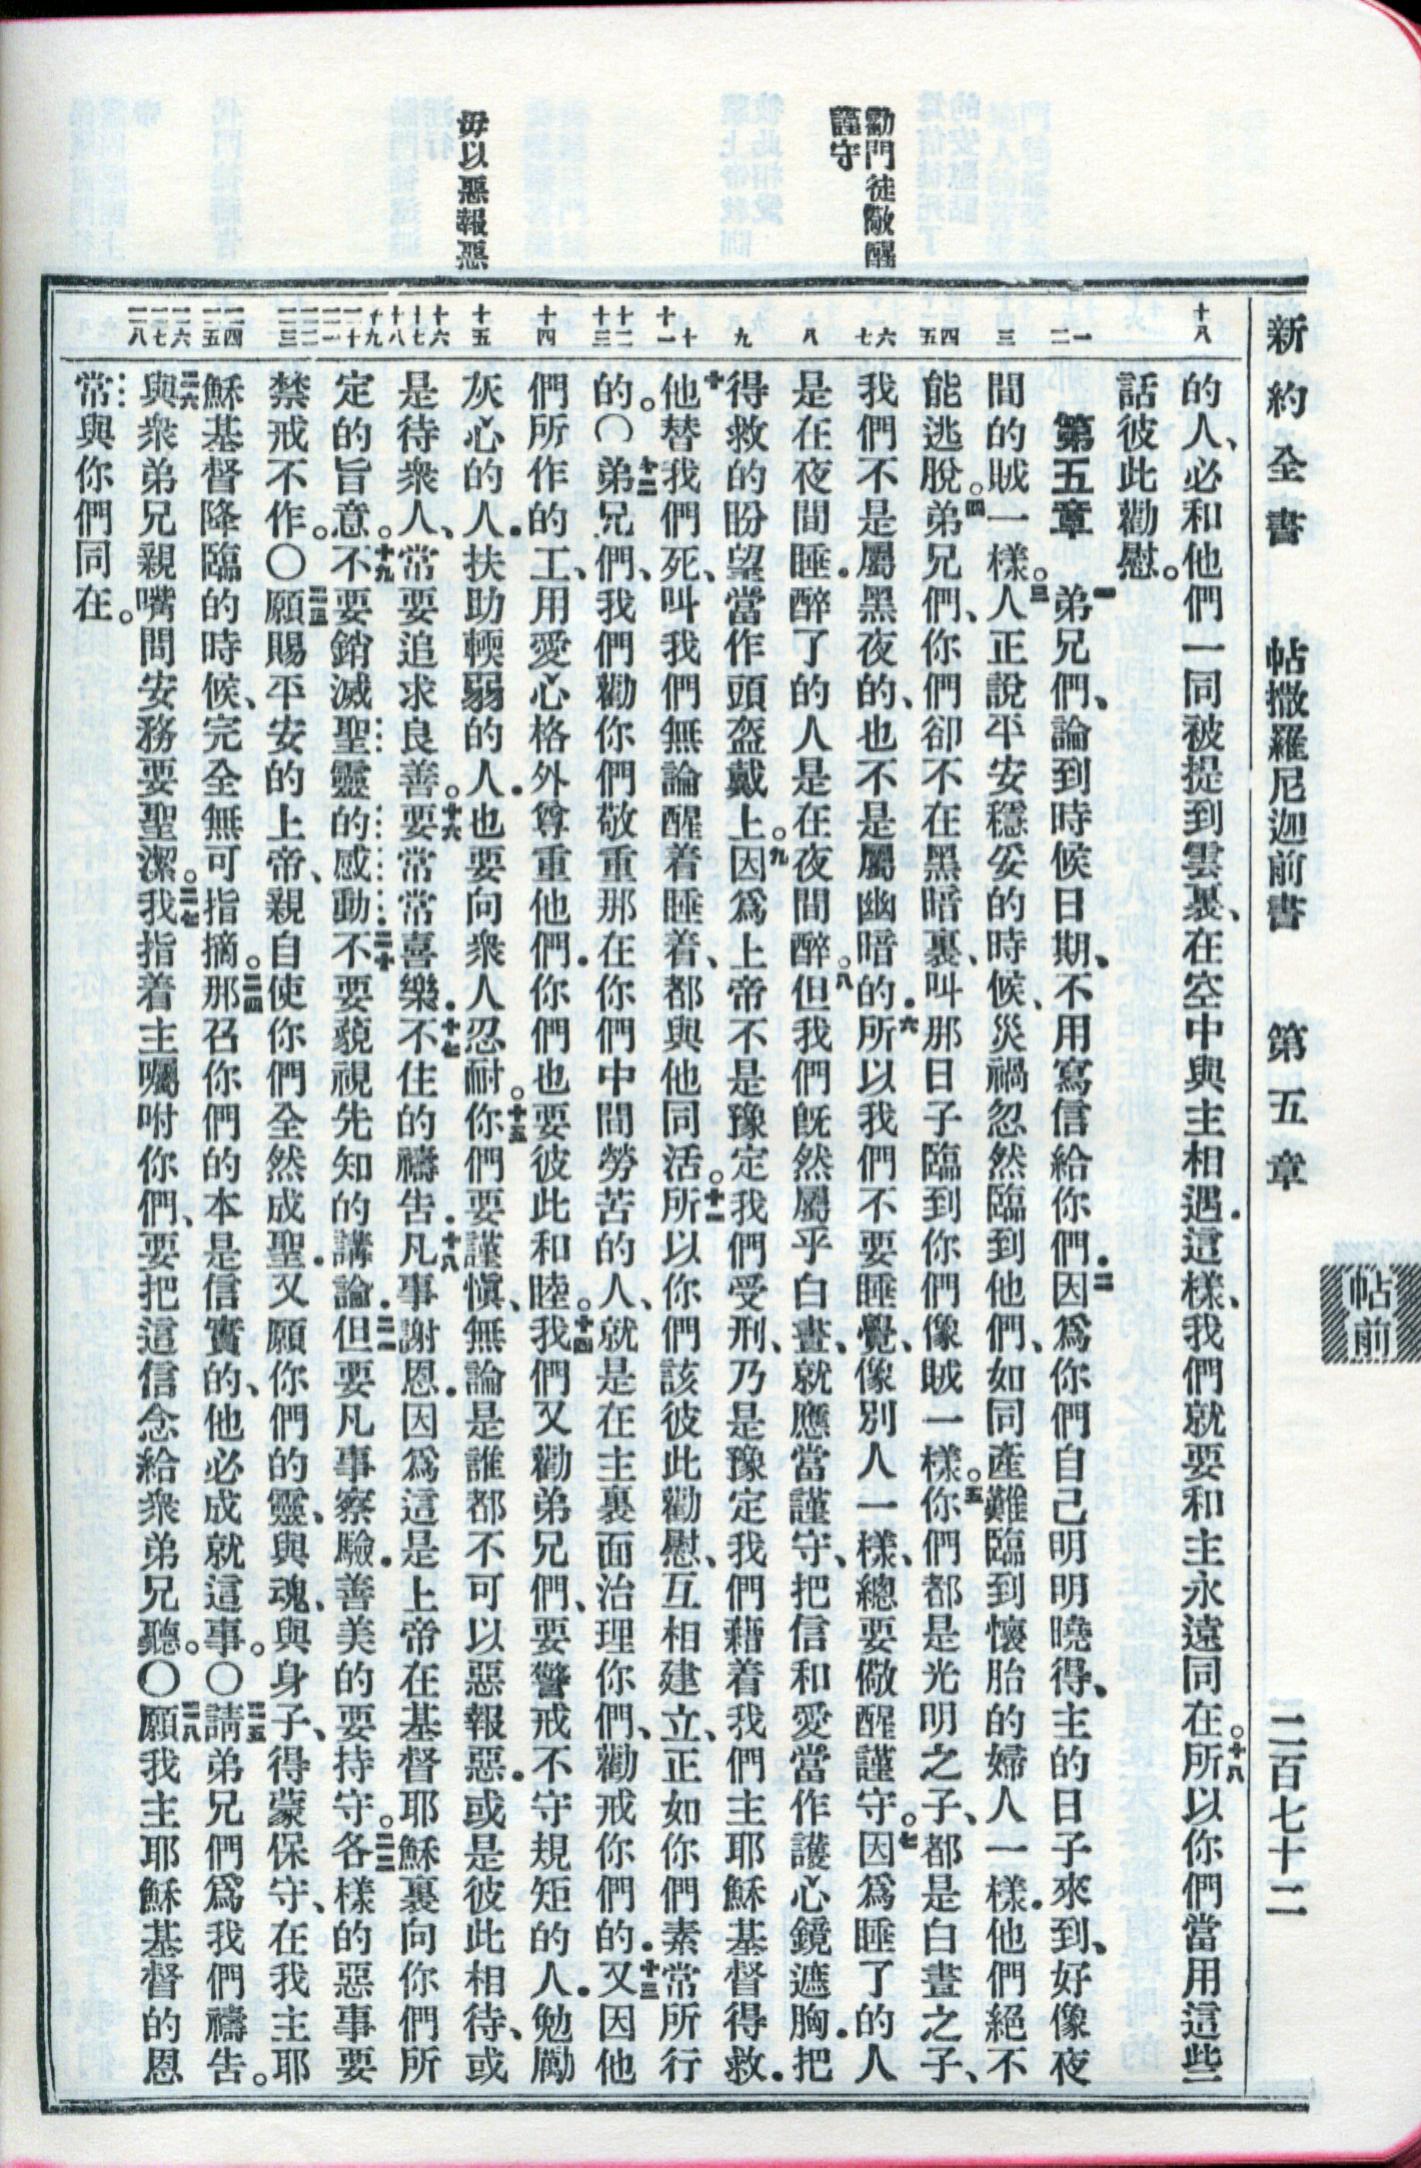 新約全書　帖撒羅尼迦前書　第五章　二百七十二
帖前
勸門徒儆醒
謹守
毋以惡報惡
十八
一
二
三
四
五
六
七
八
九
十
十一
十二
十三
十四
十五
十六
十七
十八
十九
二十
二一
二二
二三
二四
二五
二六
二七
二八
的人、必和他們一同被提到雲裏、在空中與主相遇．這樣、我們就要和主永遠同在。十八所以你們當用這些
話彼此勸慰。
第五章　一弟兄們、論到時候日期、不用寫信給你們．二因爲你們自己明明曉得、主的日子來到、好像夜
間的賊一樣。三人正說平安穩妥的時候、災禍忽然臨到他們、如同產難臨到懷胎的婦人一樣．他們絕不
能逃脫。四弟兄們、你們卻不在黑暗裏、叫那日子臨到你們像賊一樣。五你們都是光明之子、都是白晝之子、
我們不是屬黑夜的、也不是屬幽暗的．六所以我們不要睡覺、像別人一樣、總要儆醒謹守。七因爲睡了的人
是在夜間睡．醉了的人是在夜間醉。八但我們旣然屬乎白晝、就應當謹守、把信和愛當作護心鏡遮胸．把
得救的盼望當作頭盔戴上。九因爲上帝不是豫定我們受刑、乃是豫定我們藉着我們主耶穌基督得救．
十他替我們死、叫我們無論醒着睡着、都與他同活。十一所以你們該彼此勸慰、互相建立、正如你們素常所行
的。〇十二弟兄們、我們勸你們敬重那在你們中間勞苦的人、就是在主裏面治理你們、勸戒你們的．十三又因他
們所作的工、用愛心格外尊重他們．你們也要彼此和睦。十四我們又勸弟兄們、要警戒不守規矩的人．勉勵
灰心的人．扶助輭弱的人．也要向衆人忍耐。十五你們要謹愼、無論是誰都不可以惡報惡．或是彼此相待、或
是待衆人、常要追求良善。十六要常常喜樂．十七不住的禱吿．十八凡事謝恩．因爲這是上帝在基督耶穌裏向你們所
定的旨意。十九不要銷滅聖靈的感動．二十不要藐視先知的講論．二一但要凡事察驗．善美的要持守。二二各樣的惡事要
禁戒不作。〇二三願賜平安的上帝、親自使你們全然成聖．又願你們的靈、與魂、與身子、得蒙保守、在我主耶
穌基督降臨的時候、完全無可指摘。二四那召你們的本是信實的、他必成就這事。〇二五請弟兄們爲我們禱吿。
二六與衆弟兄親嘴問安務要聖潔。二七我指着主囑咐你們、要把這信念給衆弟兄聽。〇二八願我主耶穌基督的恩
常與你們同在。